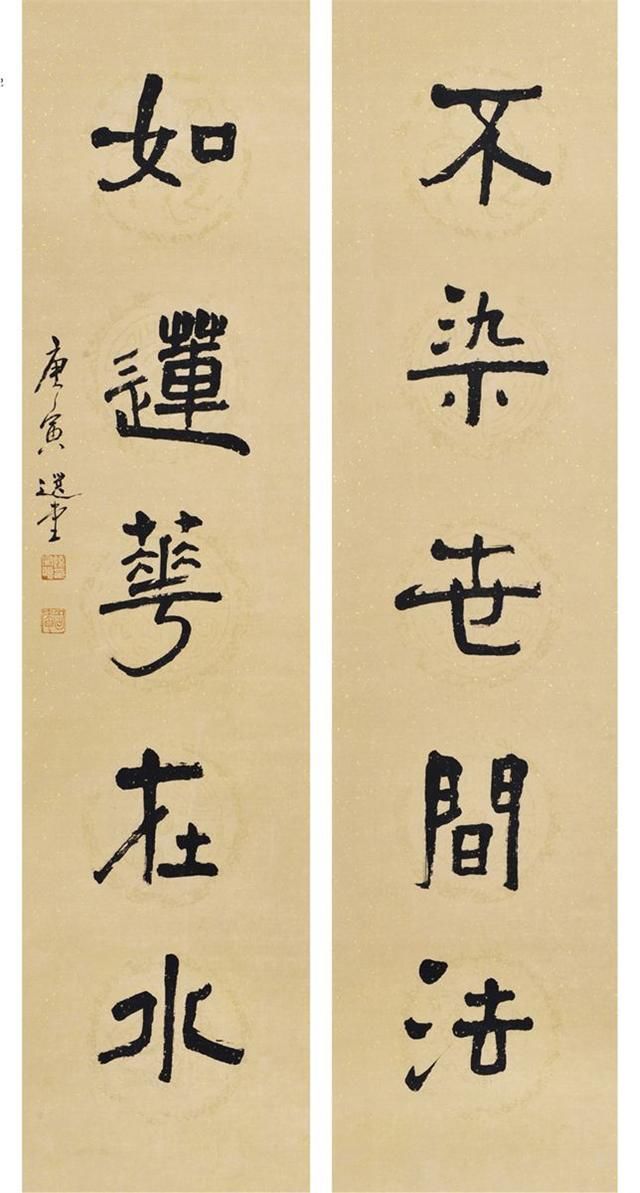 不染世間法
如蓮華在水
庚寅選堂